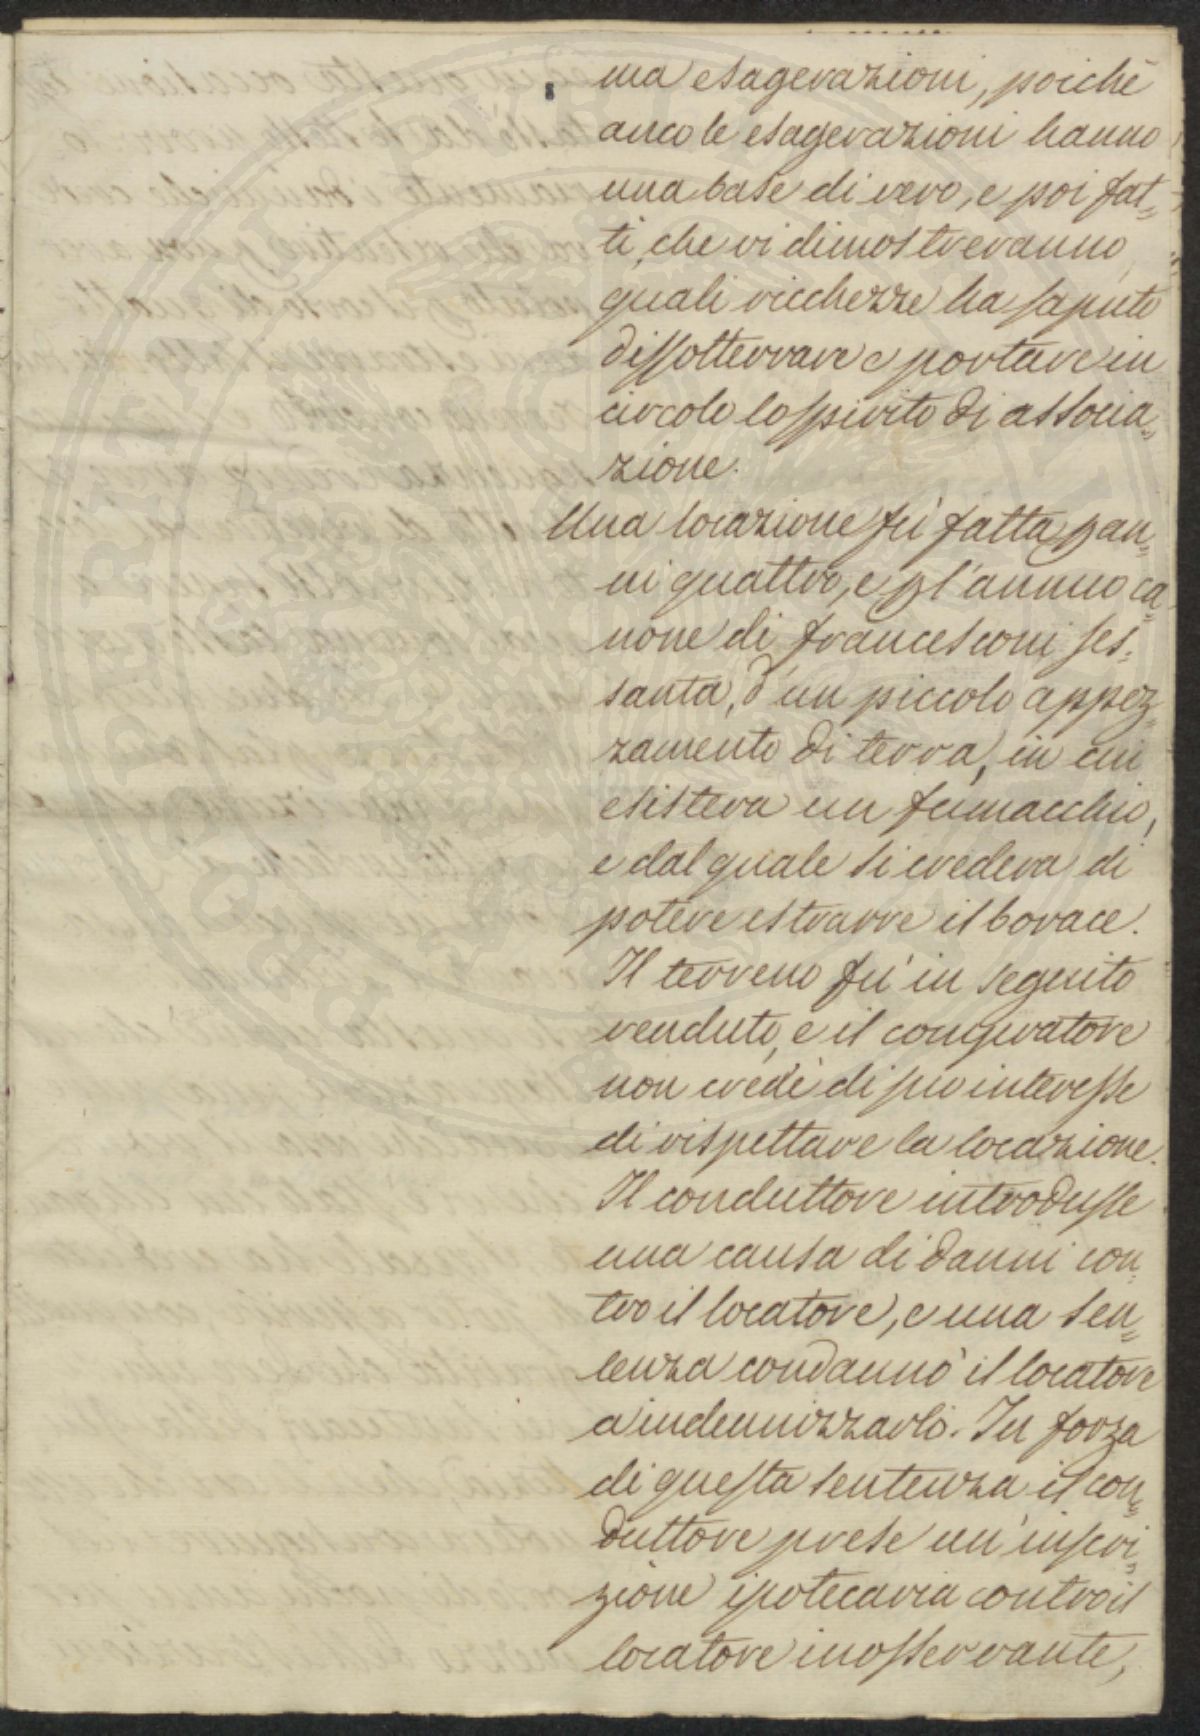 ma esagerazioni, poichè
anco le esagerazioni hanno
una base di vero, e poi fat=
ti, che vi dimostreranno
quali ricchezze ha saputo
dissotterrare e portare in
circolo lo spirito di associa=
zione.
Una locazione fù fatta p an=
ni quattro, e p l'annuo ca
none di francesconi ses=
santa, d'un piccolo appez=
zamento di terra, in cui
esisteva un fumacchio,
e dal quale si credeva di
potere estrarre il borace.
Il terreno fù in seguito
venduto, e il compratore
non credè di suo interesse
di rispettare la locazione.
Il conduttore introdusse
una causa di danni con=
tro il locatore, e una sen=
tenza condannò il locatore
a indennizzarlo. In forza
di questa sentenza il con=
duttore prese un'inscri=
zione ipotecaria contro il
locatore inosservante,
PROSPERITE PUBLI